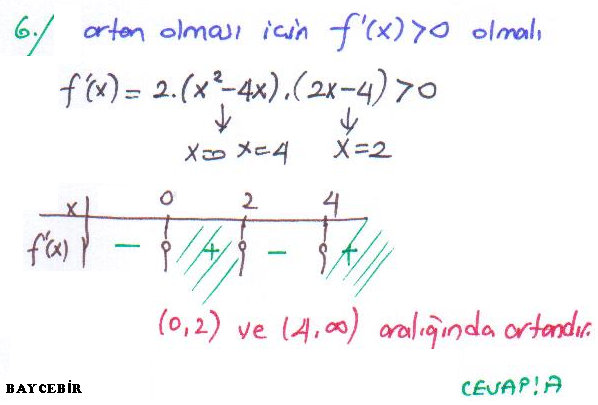 6./ artan olması için f'(x)>0 olmalı
f'(x) = 2.(x²-4x).(2x-4)>0
↓ ↓
x=0 x=4 x=2
x 0 2 4
f'(x) - + - +
(0,2) ve (4,∞) aralığında artandır.
CEVAP!A
BAYCEBİR